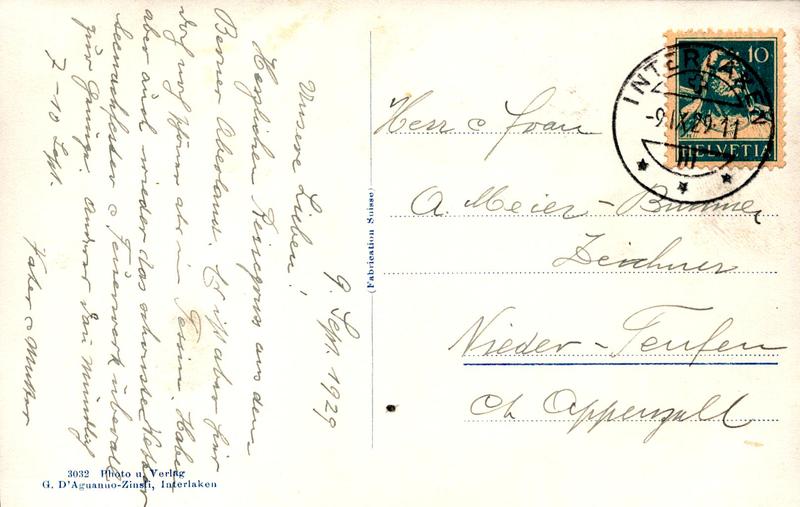 9. Sept. 1929
Unsere Lieben!
Herzlichen Reisegruss aus dem
Berner Oberland. Es ist aber hier
doch noch schöner als in Tessin. Haben
aber auch wieder das schönste Wetter
Seenachtfeste & Feuerwerk überall
zur Genüge. Anderes dann mündlich
7-10 Sept.
Vater & Mutter
(Fabrication Suisse)
3032 Photo u. Verlag
G. D'Aguanno-Zinsli, Interlaken
10
HELVETIA
INTERLAKEN
-9.IX.29-11
III
Herr & Frau
A. Meier-
Zeichner
Nieder-Teufen
Ct. Appenzell